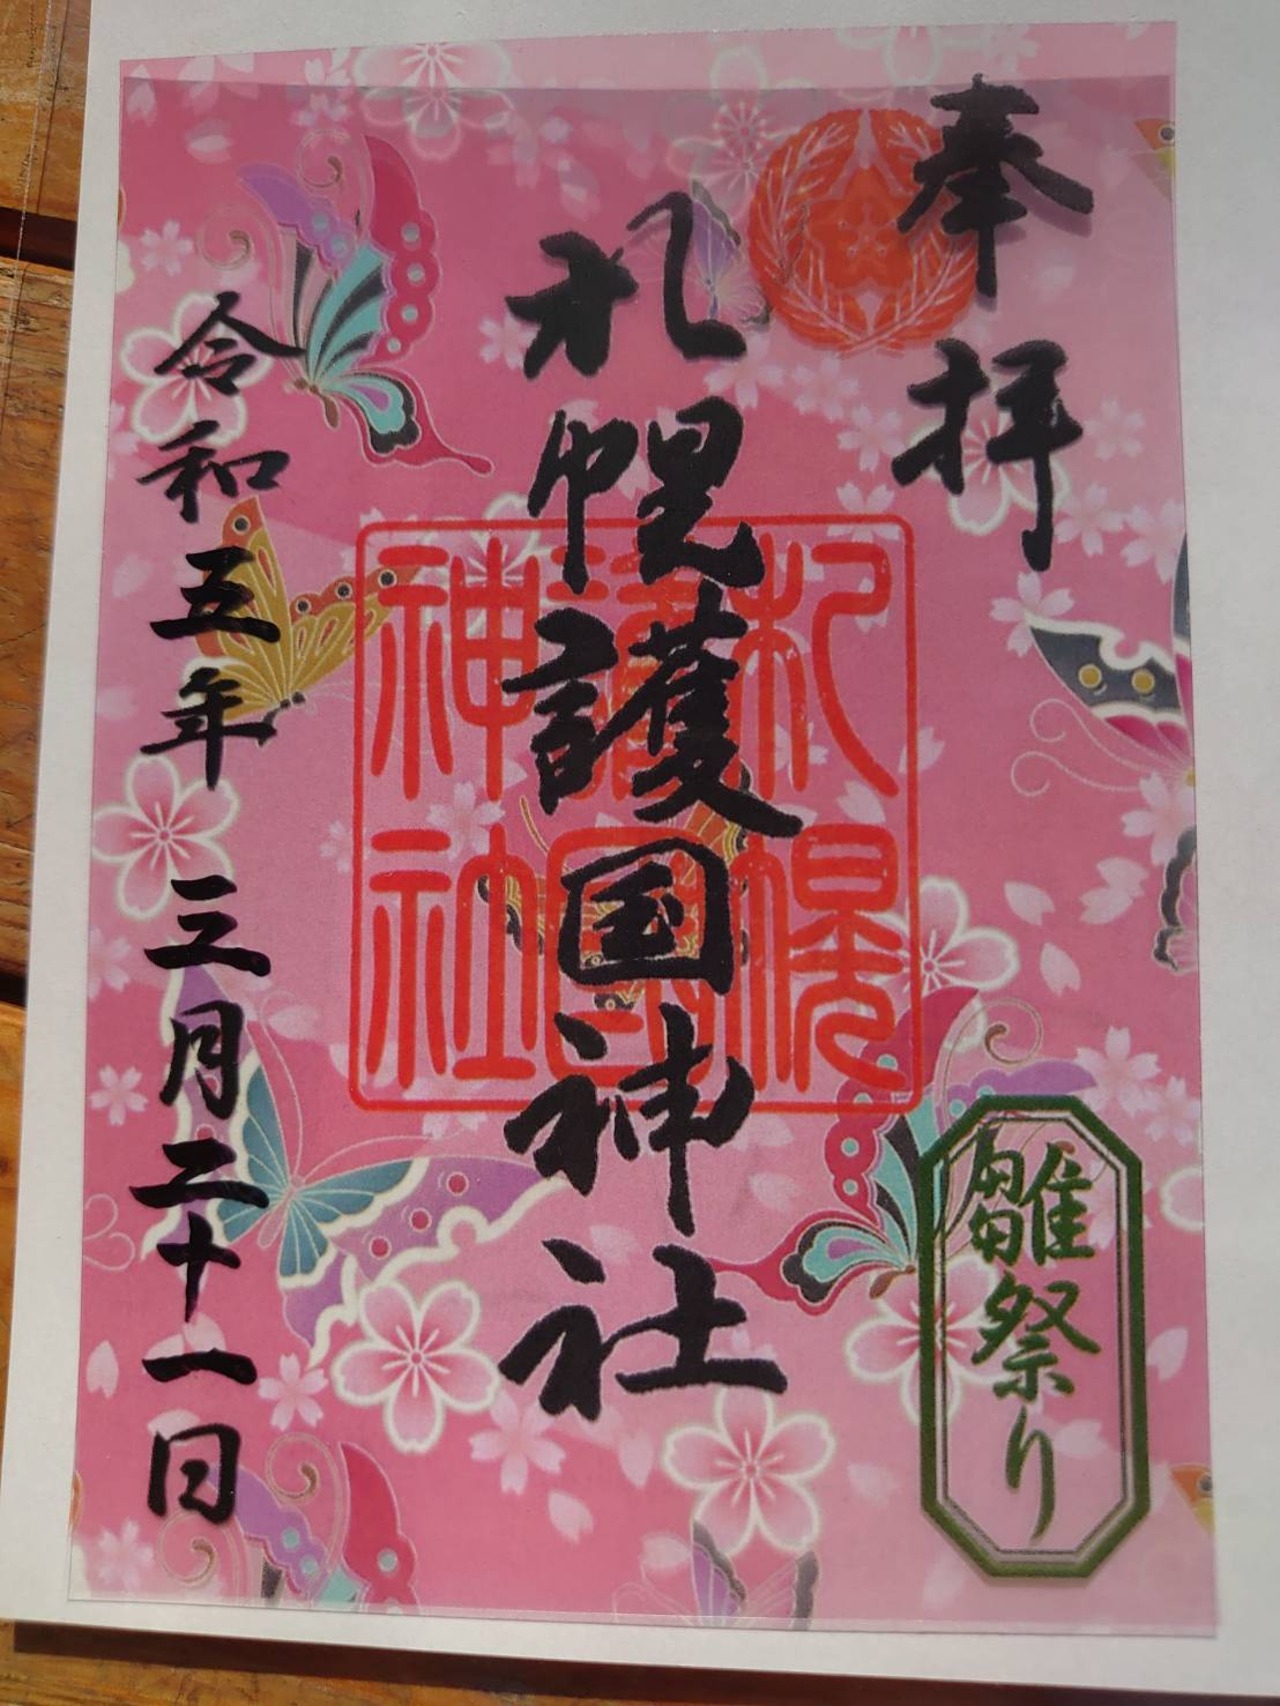 奉拝
雛祭り
札幌護国神社
札幌
護国
神社
令和五年 三月二十一日